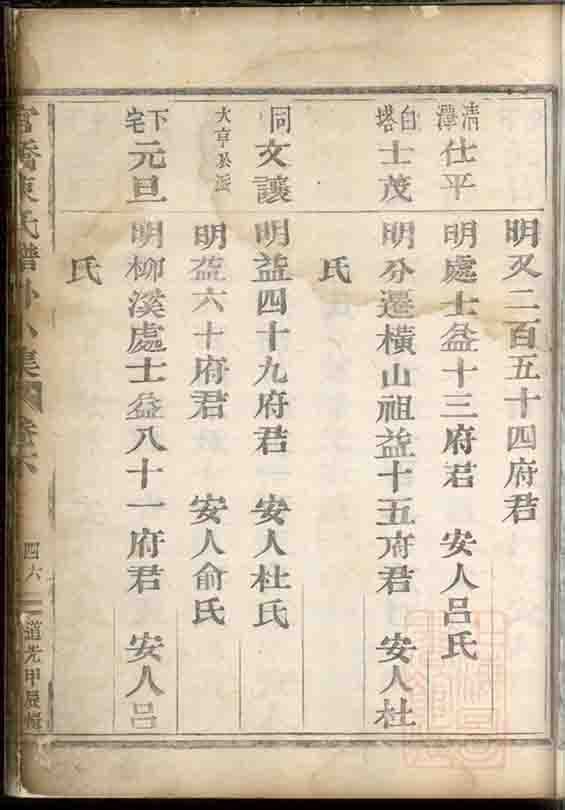 明殁二百五十四府君
清潭 仕平 明處士益十三府君 安人呂氏
白塔 士茂 明分遷橫山祖益十五府君 安人杜
氏
同 文讓 明益四十九府君 安人杜氏
大亨公派 明益六十府君 安人俞氏
下宅 元旦 明柳溪處士益八十一府君 安人呂
氏
官橋陳氏譜外小集 卷六 四六 道光甲辰輯